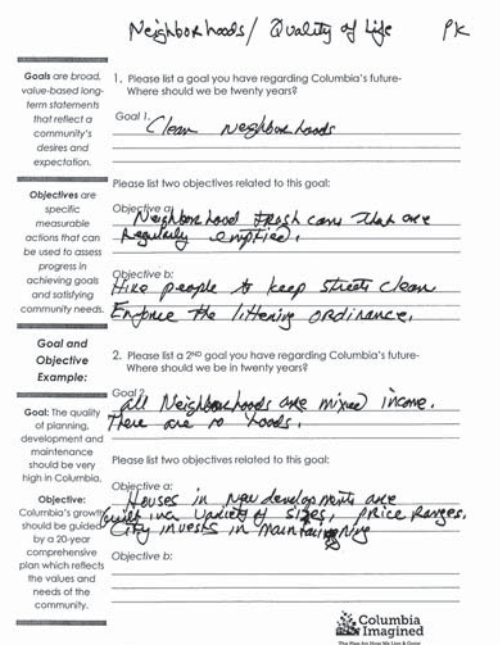 Neighborhoods/ Quality of Life PK
Goals are broad,
value-based long-
term statements
that reflect a
community's
desires and
expectation.
Objectives are
specific
measurable
actions that can
be used to assess
progress in
achieving goals
and satisfying
community needs.
Goal and
Objective
Example:
Goal: The quality
of planning,
development and
maintenance
should be very
high in Columbia.
Objective:
Columbia's growth
should be guided
by a 20-year
comprehensive
plan which reflects
the values and
needs of the
community.
1. Please list a goal you have regarding Columbia's future-
Where should we be twenty years?
Goal 1.
Clean Neighborhoods
Please list two objectives related to this goal:
Objective a:
Neighborhood trash cans that are
Regularly emptied.
Objective b:
Hire people to keep streets clean
Enforce the littering ordinance.
2. Please list a 2ND goal you have regarding Columbia's future-
Where should we be in twenty years?
Goal 2.
All Neighborhoods are mixed income.
There are no hoods.
Please list two objectives related to this goal:
Objective a:
Houses in new developments are
built in a variety of sizes, price ranges.
City invests in maintaining
Objective b:
Columbia
Imagined
The Plan for How We Live & Grow